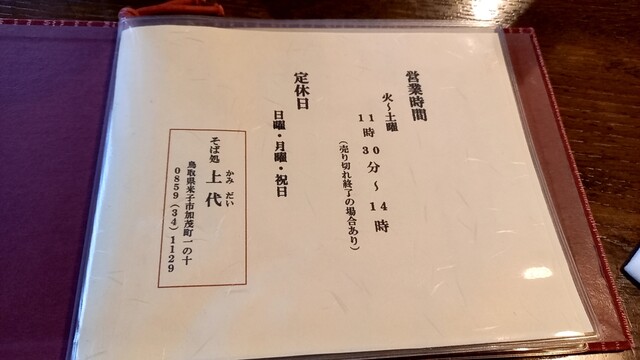 営業時間
火～土曜
11時30分～14時
(売り切れ終了の場合あり)
定休日
日曜・月曜・祝日
そば処
上代
かみだい
鳥取県米子市加茂町一の十
0859(34)1129